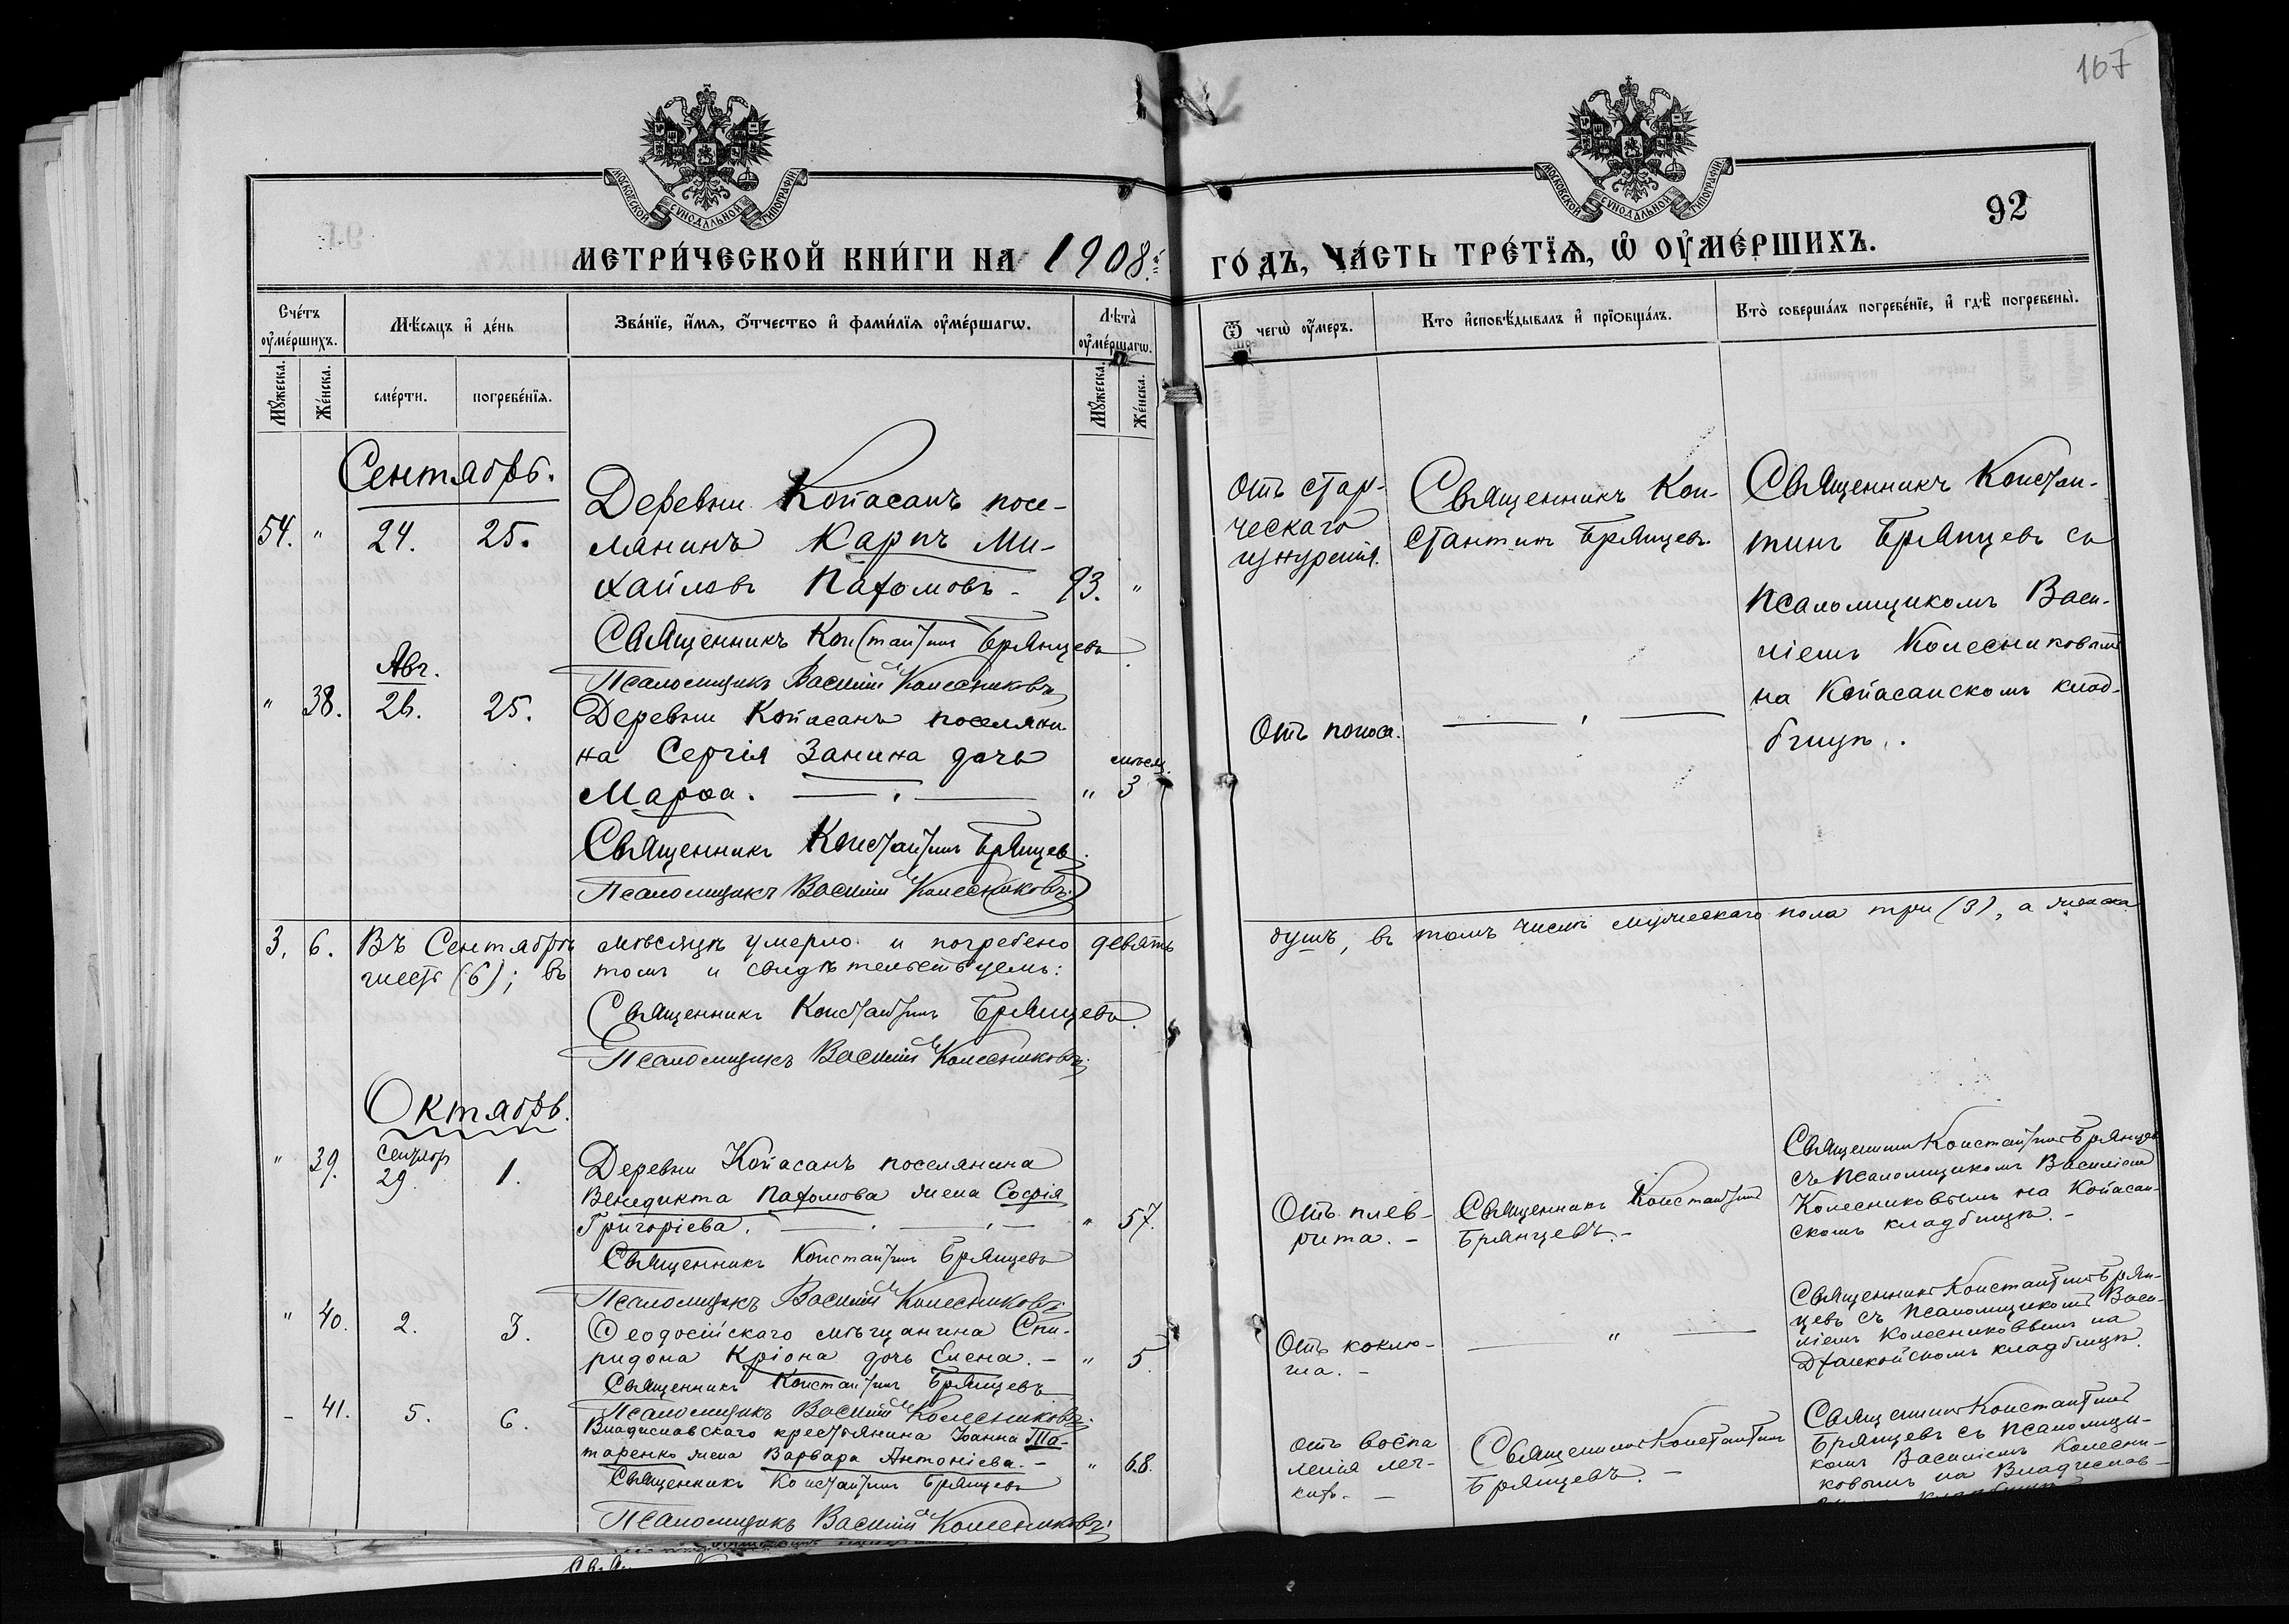 167
МОСКОВСКОЙ СѴНОДАЛЬНОЙ ТИПОГРАФІИ
МОСКОВСКОЙ СѴНОДАЛЬНОЙ ТИПОГРАФІИ
92
МЕТРИ́ЧЕСКОЙ КНИ́ГИ НА 1908.й
ГО́ДЪ, ЧА́СТЬ ТРЕ́ТЇѦ, Ѿ ОУ҆МЕ́РШИХЪ.
Сче́тъ оу҆ме́ршихъ.
Мѣ́сяцъ и҆ де́нь
Зва́нїе, и҆́мя, ѻ҆́тчество и҆ фами́лїя оу҆ме́ршагѡ.
Лѣта̀ оу҆ме́ршагѡ.
Ѿ чегѡ̀ оу҆́меръ.
Кто и҆сповѣ́дывалъ и҆ прїѡбща́лъ.
Кто̀ соверша́лъ погребе́нїе, и҆ гдѣ̀ погребены̀.
Мꙋ́жеска.
Же́нска.
сме́рти.
погребе́нїя.
Мꙋ́жеска.
Же́нска.
Сентябрь.
54. " 24. 25.
Деревни Копасанъ посе-
лянинъ Карпъ Ми-
хайловъ Пахомовъ - 93. "
Священникъ Константинъ Брянцевъ
Псаломщикъ Василій Колесниковъ
Отъ стар-
ческаго
изнуренія.
Священникъ Кон-
стантинъ Брянцевъ.
Священникъ Констан-
тинъ Брянцевъ съ
псаломщикомъ Васи-
ліемъ Колесниковымъ
на Копасанскомъ клад-
бищѣ.
Авг.
" 38. 26. 25.
Деревни Копасанъ поселяни-
на Сергія Занина дочь
мѣсяц.
Марѳа. " 3
Священникъ Константинъ Брянцевъ.
Псаломщикъ Василій Колесниковъ.
Отъ поноса.
3. 6. Въ Сентябрѣ мѣсяцѣ умерло и погребено девять душъ, въ томъ числѣ мужескаго пола три (3), а женска
шесть (6); въ томъ и свидѣтельствуемъ:
Священникъ Константинъ Брянцевъ.
Псаломщикъ Василій Колесниковъ.
Октябрь.
Сентябр
" 39. 29. 1.
Деревни Копасанъ поселянина
Венедикта Пахомова жена Софія
Григоріева. " 57.
Священникъ Константинъ Брянцевъ
Псаломщикъ Василій Колесниковъ.
Отъ плев-
рита. -
Священникъ Константинъ
Брянцевъ. -
Священникъ Константинъ Брянцевъ
съ псаломщикомъ Василіемъ
Колесниковымъ на Копасан-
скомъ кладбищѣ. -
" 40. 2. 3.
Ѳеодосійскаго мѣщанина Спи-
ридона Кріона дочь Елена. - " 5.
Священникъ Константинъ Брянцевъ
Псаломщикъ Василій Колесниковъ.
Отъ коклю-
ша. -
"
Священникъ Константинъ Брян-
цевъ съ псаломщикомъ Васи-
ліемъ Колесниковымъ на
Джанкойскомъ кладбищѣ.
- 41. 5. 6.
Владиславскаго крестьянина Іоанна Та-
таренко жена Варвара Антоніева. - " 68.
Священникъ Константинъ Брянцевъ
Псаломщикъ Василій Колесниковъ.
Отъ воспа
ленія лег-
кихъ. -
Священникъ Константинъ
Брянцевъ. -
Священникъ Константинъ
Брянцевъ съ псаломщи-
комъ Василіемъ Колесни-
ковымъ на Владислав-
кладбищѣ